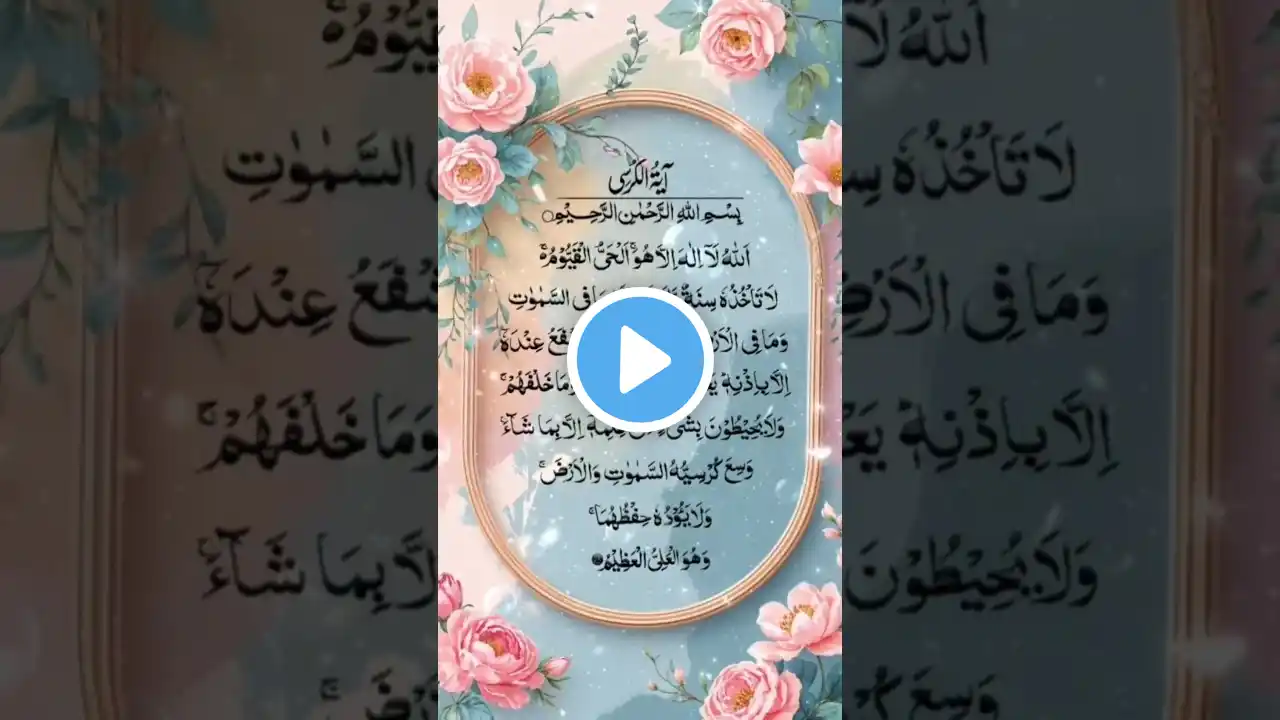 آيَةُ الكُرْسِى
بِسْمِ اللهِ الرَّحْمٰنِ الرَّحِيْمِ○
اَللهُ لَآ اِلٰهَ اِلَّا هُوَ ۚ اَلْحَیُّ الْقَيُّوْمُ ۚ
لَا تَاْخُذُهٗ سِنَةٌ فِی السَّمٰوٰتِ
وَمَا فِی الْاَرْضِ عِنْدَهٗٓ
اِلَّا بِاِذْنِهٖ وَمَا خَلْفَهُمْ ۚ
وَلَا يُحِيْطُوْنَ بِشَیْءٍ اِلَّا بِمَا شَآءَ ۚ
وَسِعَ كُرْسِيُّهُ السَّمٰوٰتِ وَالْاَرْضَ ۚ
وَلَا يَئُوْدُهٗ حِفْظُهُمَا ۚ
وَهُوَ الْعَلِیُّ الْعَظِيْمُ